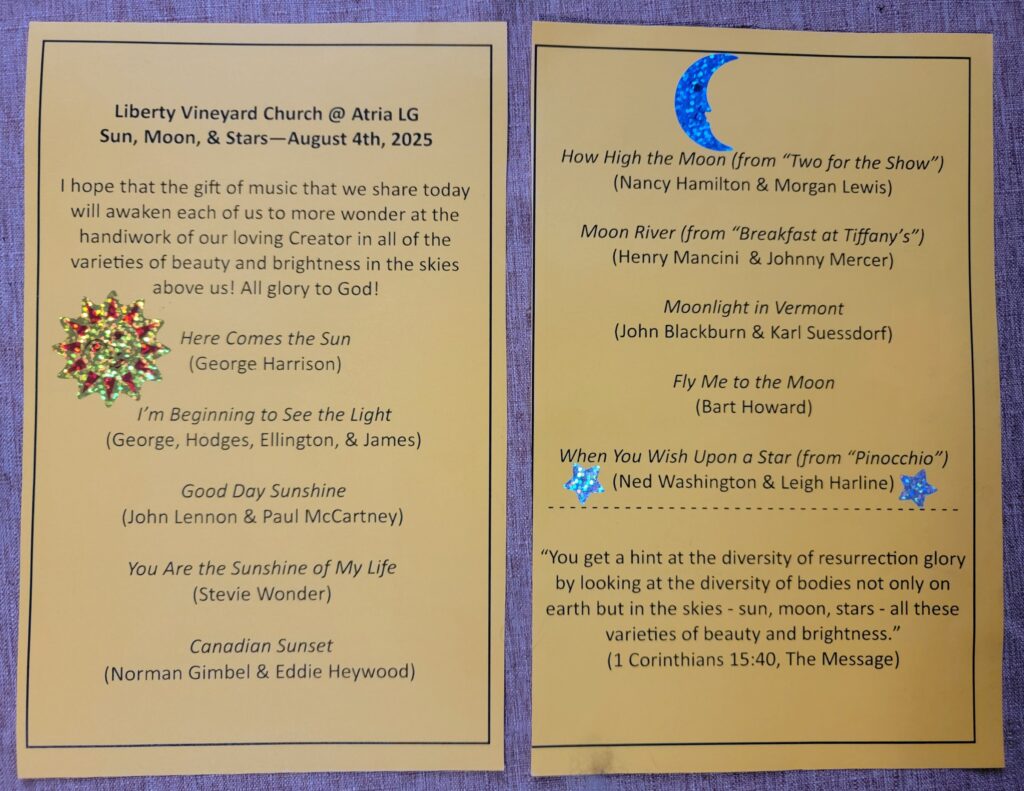 Liberty Vineyard Church @ Atria LG
Sun, Moon, & Stars—August 4th, 2025
I hope that the gift of music that we share today
will awaken each of us to more wonder at the
handiwork of our loving Creator in all of the
varieties of beauty and brightness in the skies
above us! All glory to God!
Here Comes the Sun
(George Harrison)
I'm Beginning to See the Light
(George, Hodges, Ellington, & James)
Good Day Sunshine
(John Lennon & Paul McCartney)
You Are the Sunshine of My Life
(Stevie Wonder)
Canadian Sunset
(Norman Gimbel & Eddie Heywood)
How High the Moon (from “Two for the Show”)
(Nancy Hamilton & Morgan Lewis)
Moon River (from “Breakfast at Tiffany’s”)
(Henry Mancini & Johnny Mercer)
Moonlight in Vermont
(John Blackburn & Karl Suessdorf)
Fly Me to the Moon
(Bart Howard)
When You Wish Upon a Star (from “Pinocchio”)
(Ned Washington & Leigh Harline)
“You get a hint at the diversity of resurrection glory
by looking at the diversity of bodies not only on
earth but in the skies - sun, moon, stars - all these
varieties of beauty and brightness.”
(1 Corinthians 15:40, The Message)